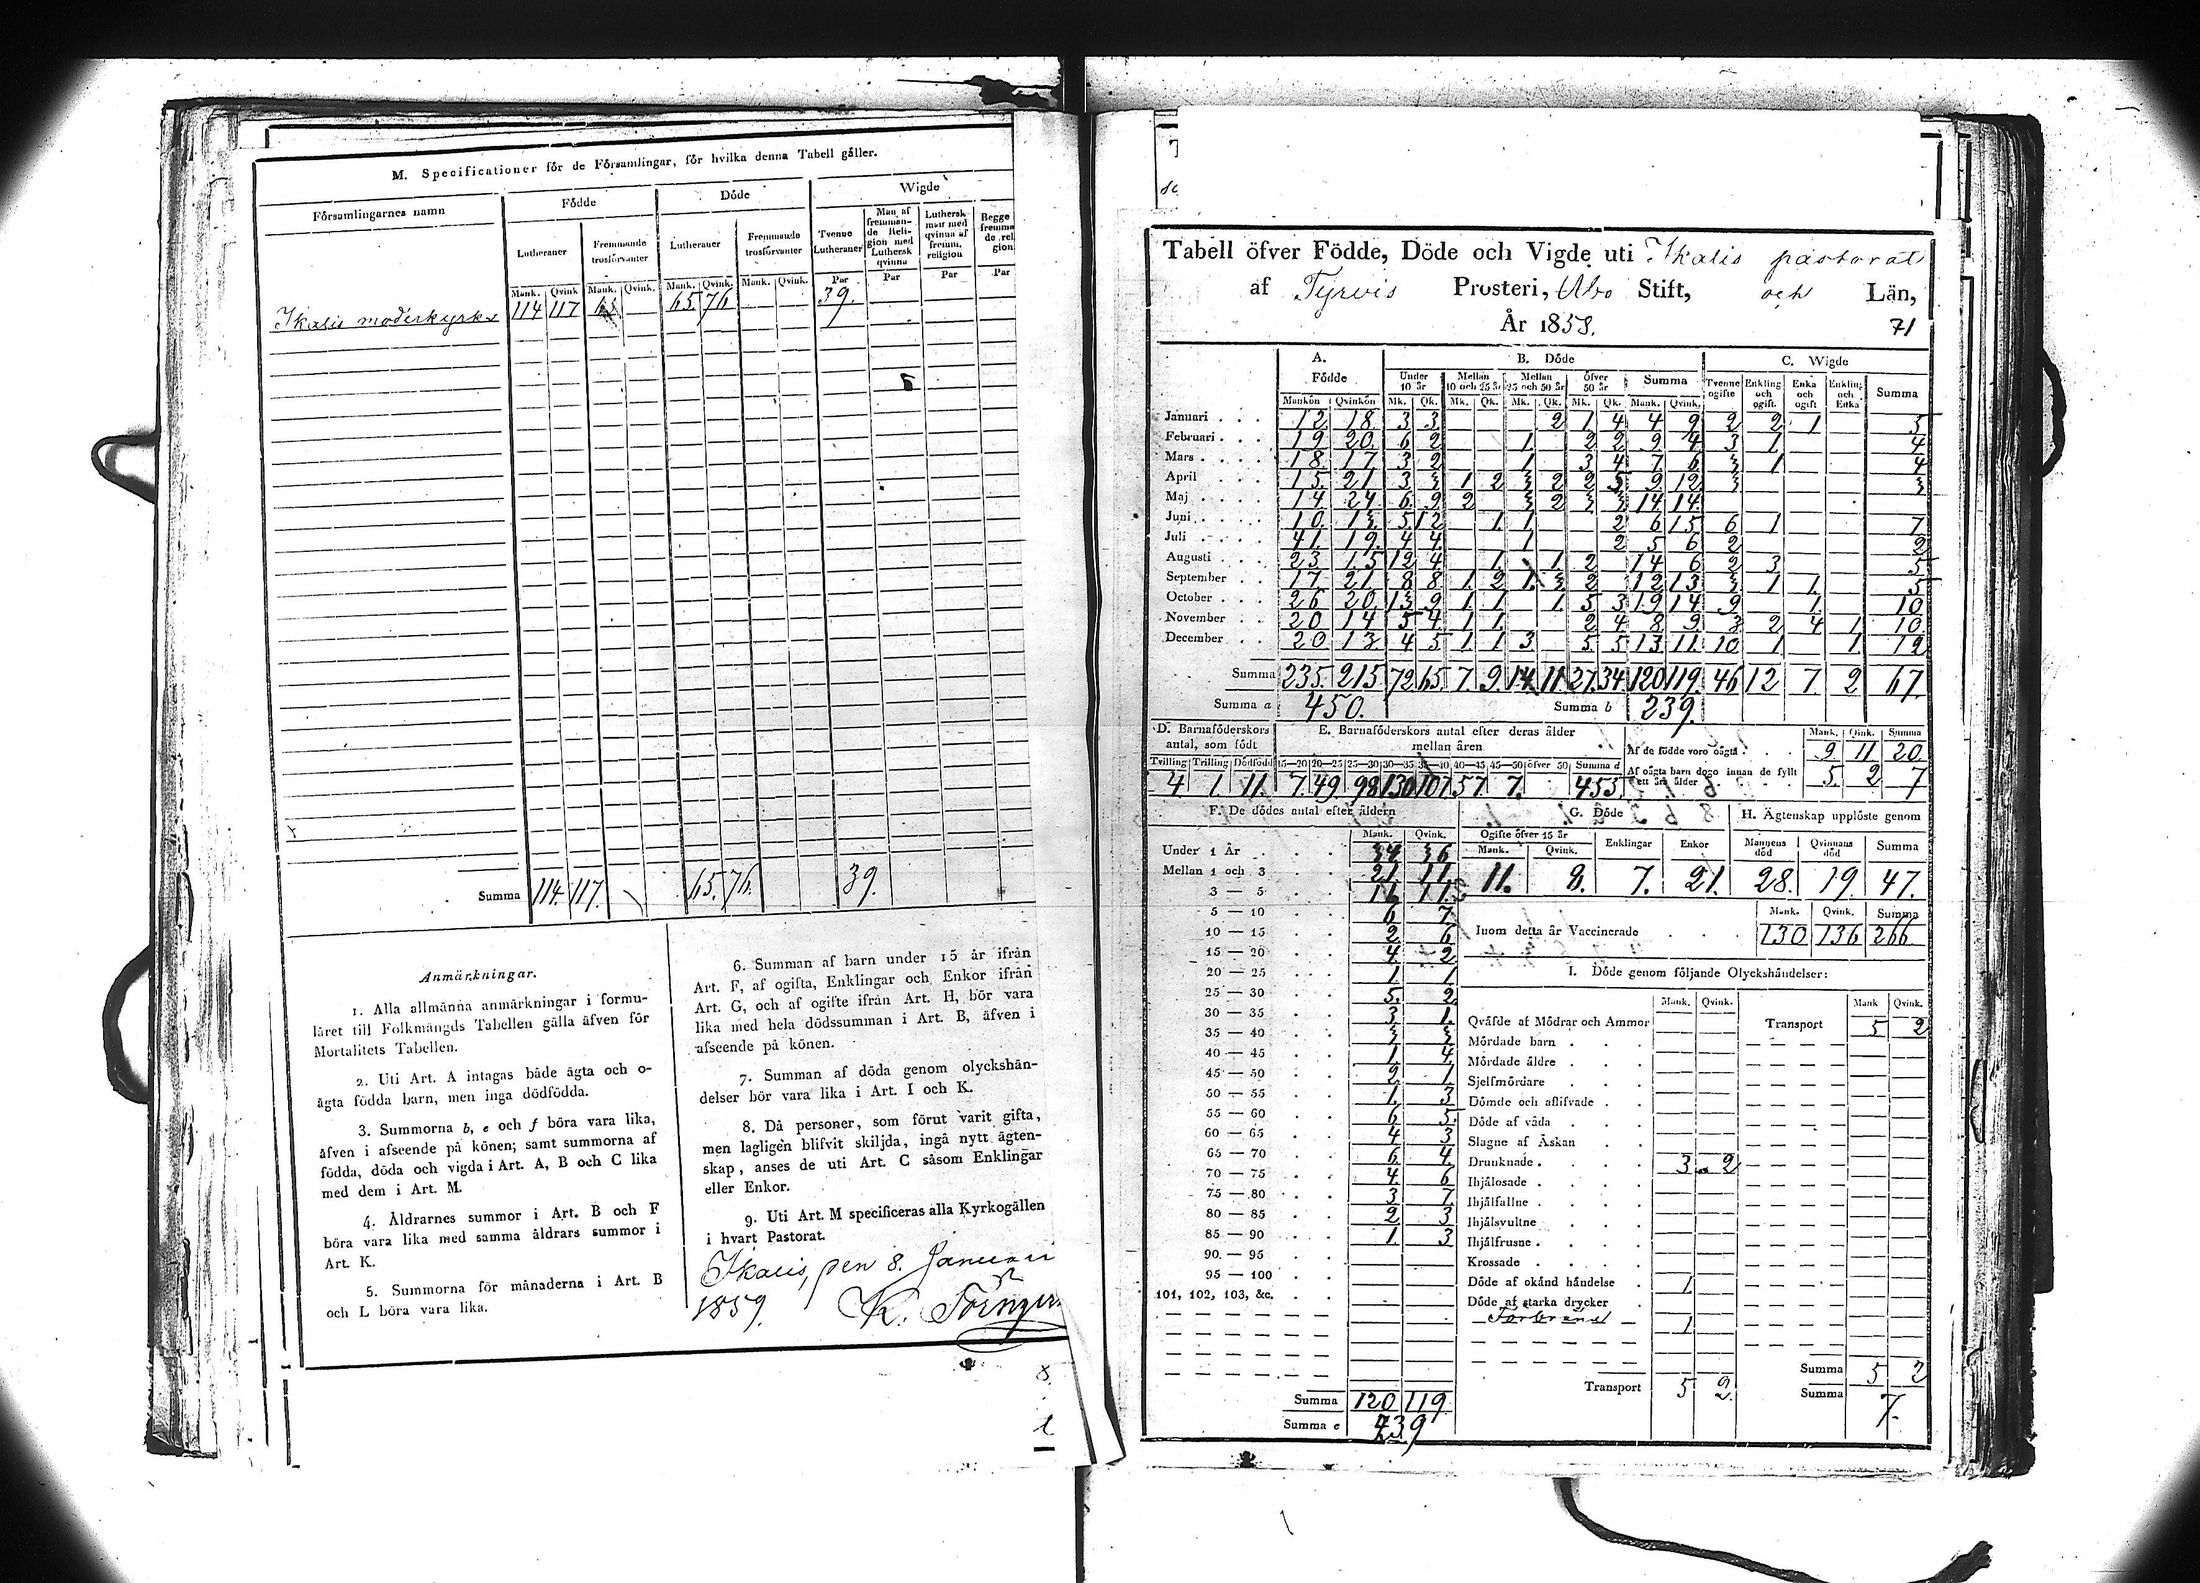 M. Specificationer för de Församlingar, för hvilka denna Tabell gäller.
Församlingarnes namn
Födde
Döde
Wigde
Lutheraner
Fremmande trosförvanter
Lutheraner
Fremmande trosförvanter
Tvenne Lutheraner
Man af fremmande Religion med Luthersk qvinna
Luthersk man med qvinna af fremm. religion
Begge
Mank. Qvink. Mank. Qvink. Mank. Qvink. Mank. Qvink. Par Par Par Par
Ikalis moderkyrka 114 117 65. 76 39.
Summa 114. 117. 65. 76. 39.
Anmärkningar.
1. Alla allmänna anmärkningar i formu-
läret till Folkmängds Tabellen gälla äfven för
Mortalitets Tabellen.
2. Uti Art. A intagas både ägta och o-
ägta födda barn, men inga dödfödda.
3. Summorna b, e och f böra vara lika,
äfven i afseende på könen; samt summorna af
födda, döda och vigda i Art. A, B och C lika
med dem i Art. M.
4. Åldrarnes summor i Art. B och F
böra vara lika med samma åldrars summor i
Art. K.
5. Summorna för månaderna i Art. B
och L böra vara lika.
6. Summan af barn under 15 år ifrån
Art. F, af ogifta, Enklingar och Enkor ifrån
Art. G, och af ogifte ifrån Art. H, bör vara
lika med hela dödssumman i Art. B, äfven i
afseende på könen.
7. Summan af döda genom olyckshän-
delser bör vara lika i Art. I och K.
8. Då personer, som förut varit gifta,
men lagligen blifvit skiljda, ingå nytt ägten-
skap, anses de uti Art. C såsom Enklingar
eller Enkor.
9. Uti Art. M specificeras alla Kyrkogällen
i hvart Pastorat.
Ikalis, den 8. Januari
1859. K.
Tabell öfver Födde, Döde och Vigde uti Ikalis pastorat
af Tyrvis Prosteri, Åbo Stift, och Län,
År 1858. 71
A. Födde
B. Döde
C. Wigde
Under 10 år
Mellan 10 och 25 år
Mellan 25 och 50 år
Öfver 50 år
Summa
Tvenne ogifte
Enkling och ogift
Enka och ogift
Enkling och Enka
Summa
Mankön Qvinkön Mk. Qk. Mk. Qk. Mk. Qk. Mk. Qk. Mank. Qvink.
Januari 12 18. 3 3 2 1 4 4 9 2 2 1 5
Februari 19 20. 6 2 1 2 2 9 4 3 1 4
Mars 18. 17 3 2 1 3 4 7 6 3 1 4
April 15. 21 3 3 1 2 3 2 2 5 9 12 3 3
Maj 14. 24 6 9 2 3 2 3 3 14 14.
Juni 10. 13. 5 12 1 1 2 6 15 6 1 7
Juli 41. 19. 4 4 1 2 5 6 2 2
Augusti 23 15 12 4 1 1 2 14 6 2 3 5
September 17. 21 8 8 1. 2 1. 3 2 12 13 3 1 1. 5
October 26 20. 13 9 1 1 1. 5 3 19 14 9 1. 10
November 20 14 5 4 1 1. 2 4 8 9 3 2 4 1 10
December 20 13 4 5 1 1 3 5 5 13 11. 10 1 1. 12
Summa 235. 215 72 65 7. 9. 14. 11 27. 34 120 119. 46 12 7. 2 67.
Summa a 450. Summa b 239.
D. Barnaföderskors antal, som födt
E. Barnaföderskors antal efter deras ålder mellan åren
Tvilling Trilling Dödfödd 15—20 20—25 25—30 30—35 35—40 40—45 45—50 öfver 50 Summa d
4 1. 11. 7. 49 98 130 107 57 7. 455
Mank. Qink. Summa
Af de födde voro oägta 9 11 20
Af oägta barn dogo innan de fyllt ett års ålder 5 2 7
F. De dödes antal efter åldern
Mank. Qvink.
Under 1 År 34 36
Mellan 1 och 3 21 11
3 — 5 11
5 — 10 6 7
10 — 15 2 6
15 — 20 4. 2
20 — 25 1. 1
25 — 30 5. 2
30 — 35 3 1.
35 — 40 3 3
40 — 45 1 4
45 — 50 2 1
50 — 55 1. 3
55 — 60 6 5
60 — 65 4 3
65 — 70 6 4
70 — 75 4 6
75 — 80 3 7
80 — 85 2 3
85 — 90 1. 3
90 — 95
95 — 100
101, 102, 103, &c.
Summa 120 119
Summa e 239
G. Döde
Ogifte öfver 15 år
Mank. Qvink. Enklingar Enkor
11. 8. 7. 21.
H. Ägtenskap upplöste genom
Mannens död Qvinnans död Summa
28. 19. 47.
Mank. Qvink. Summa
Inom detta år Vaccinerade 130 136 266
I. Döde genom följande Olyckshändelser:
Mank. Qvink. Mank Qvink.
Qväfde af Mödrar och Ammor Transport 5 2
Mördade barn
Mördade äldre
Sjelfmördare
Dömde och aflifvade
Döde af våda
Slagne af Åskan
Drunknade 3 2
Ihjälosade
Ihjälfallne
Ihjälsvultne
Ihjälfrusne
Krossade
Döde af okänd händelse 1
Döde af starka drycker
Förbränd 1
Summa 5 2
Transport 5 2. Summa 7.